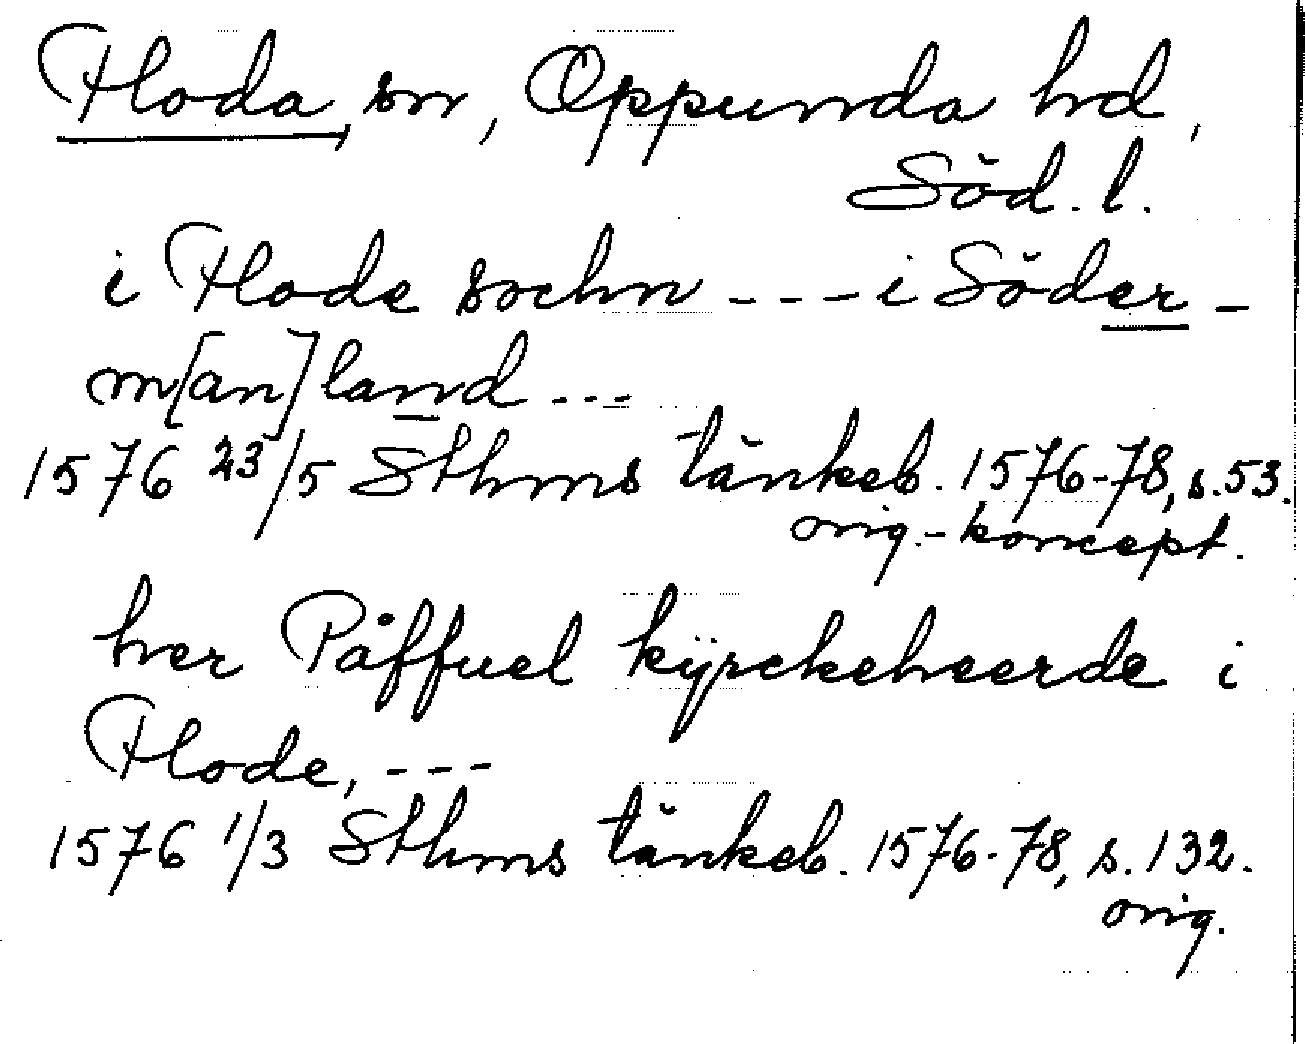 Floda, sn, Oppunda hd,
Söd. l.
i Flode sochn - - - - i Söder-
m[an]land ...
1576 23/5 Sthms tänkeb. 1576-78, s. 53.
orig.-koncept.
her Påffuel kÿrckeheerde i
Flode, - - -
1576 1/3 Sthms tänkeb. 1576-78, s. 132.
orig.